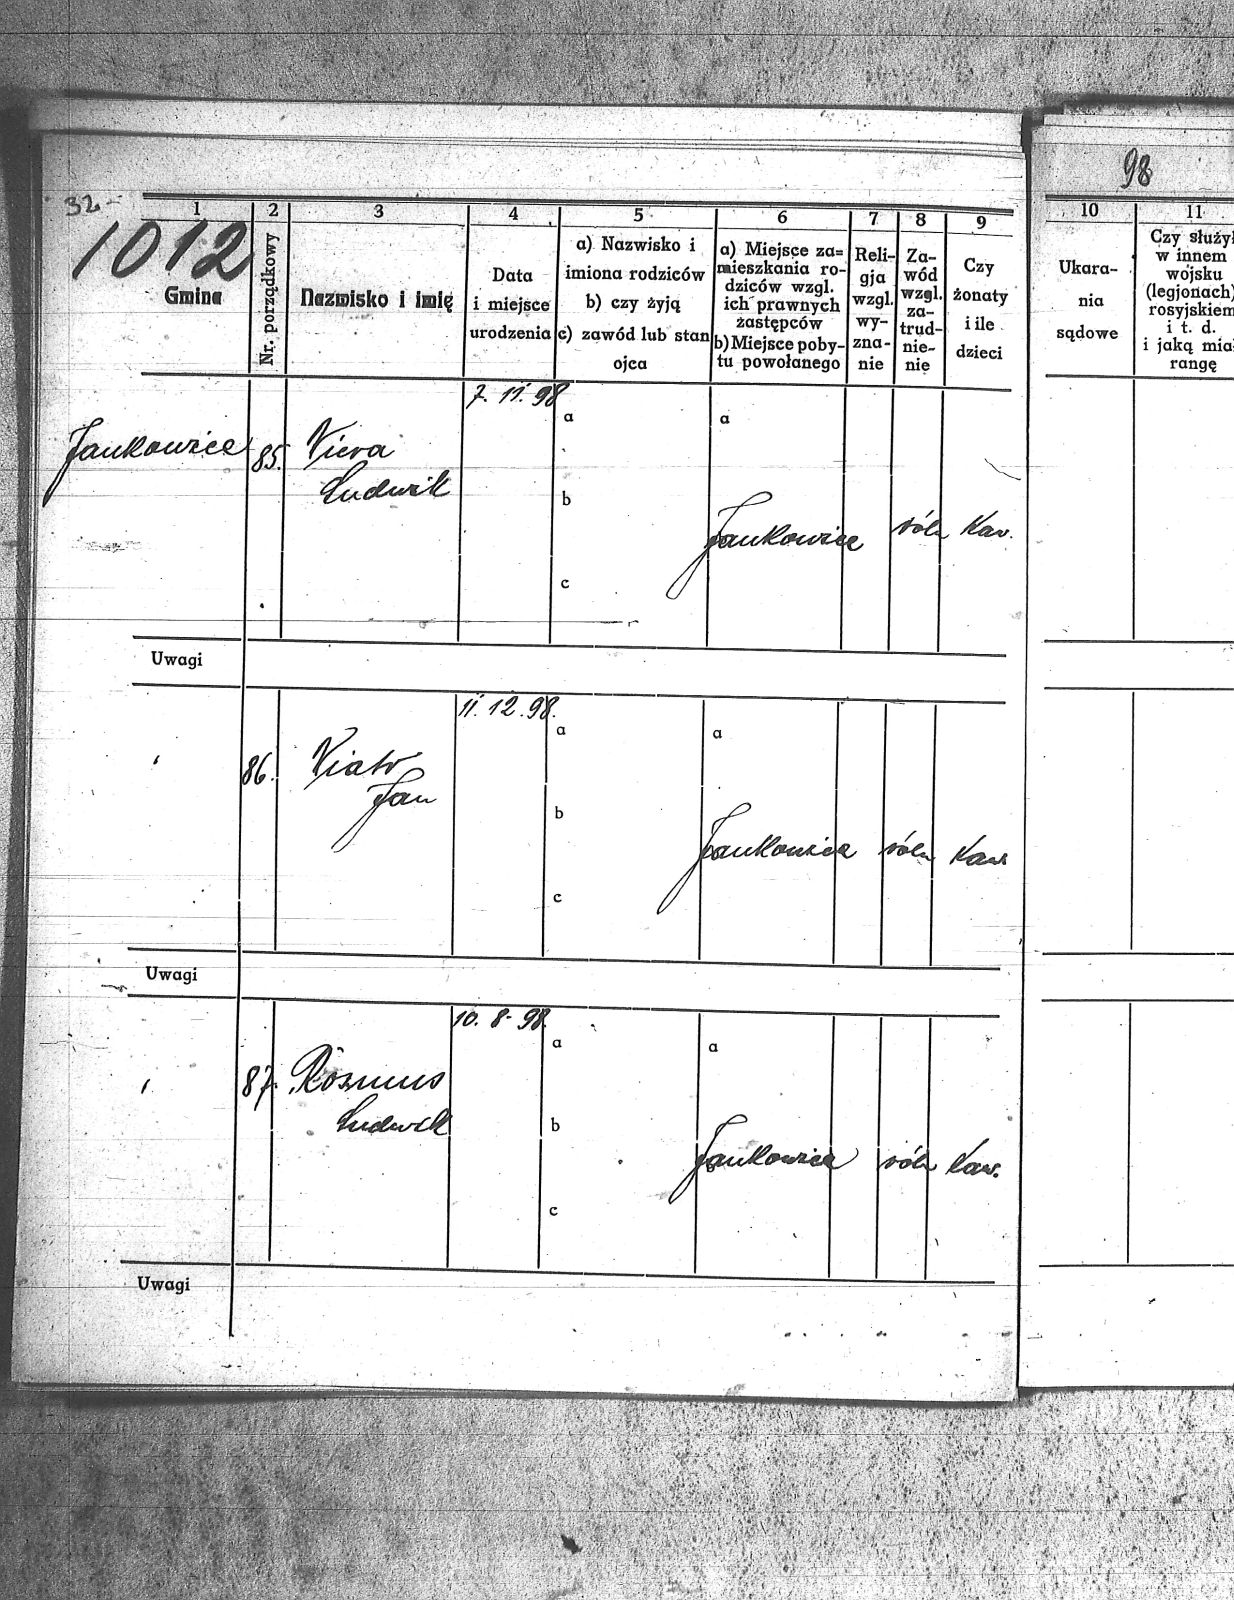 98
32-
1 2 3 4 5 6 7 8 9 10 11
1012
Gmina
Nr. porządkowy
Nazwisko i imię
Data
i miejsce
urodzenia
a) Nazwisko i
imiona rodziców
b) czy żyją
c) zawód lub stan
ojca
a) Miejsce za=
mieszkania ro-
dziców wzgl.
ich prawnych
zastępców
b) Miejsce poby-
tu powołanego
Reli-
gja
wzgl.
wy-
zna-
nie
Za-
wód
wzgl.
za-
trud-
nie-
nie
Czy
żonaty
i ile
dzieci
Ukara-
nia
sądowe
Czy służył
w innem
wojsku
(legjonach)
rosyjskiem
i t. d.
i jaką miał
rangę
7. 11. 98
a a
Jankowice 85. Viera
Ludwik
b
Jankowice róln Kaw.
c
Uwagi
11. 12. 98.
a a
86. Viatr
Jan
b
Jankowice róln Kaw
c
Uwagi
10. 8- 98.
a a
87. Rosmus
Ludwik
b
Jankowice róln Kaw.
c
Uwagi